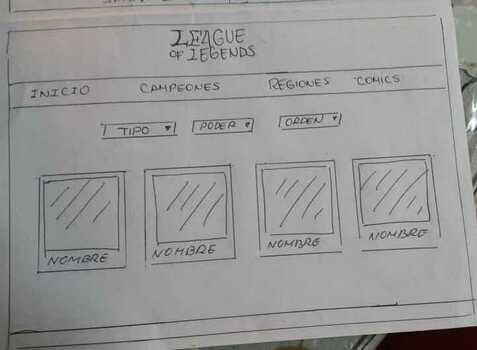 LEAGUE
OF LEGENDS
INICIO CAMPEONES REGIONES COMICS
TIPO PODER ORDEN
NOMBRE NOMBRE NOMBRE NOMBRE